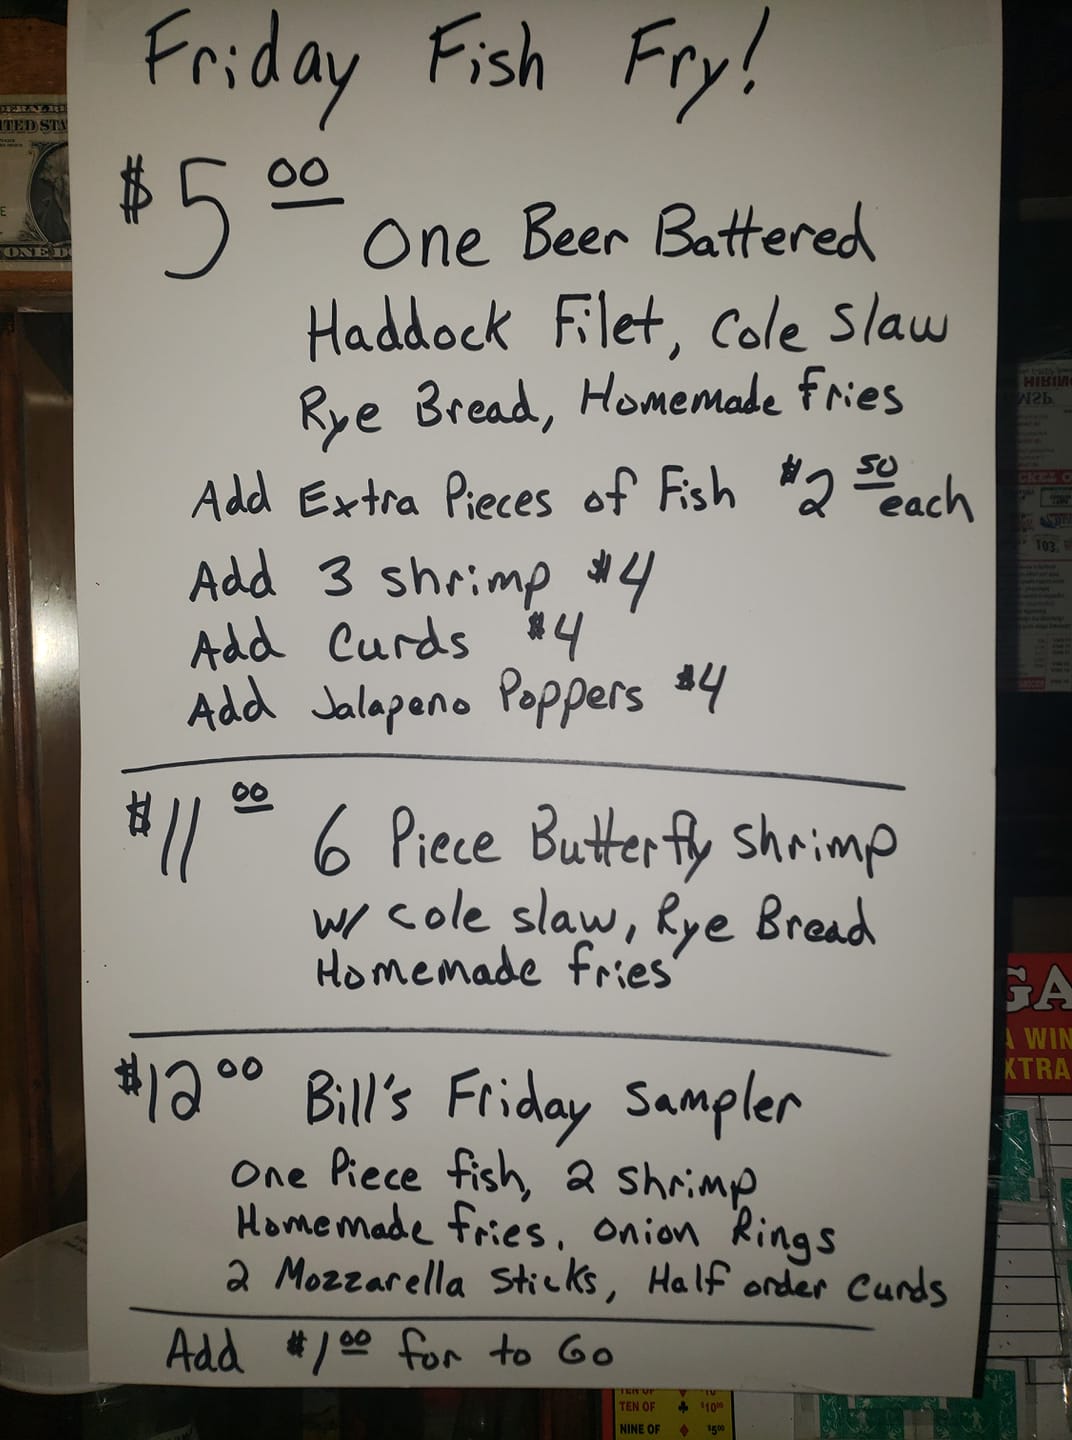 Friday Fish Fry!
$5 00
One Beer Battered
Haddock Filet, Cole Slaw
Rye Bread, Homemade fries
Add Extra Pieces of Fish $2 50 each
Add 3 shrimp $4
Add Curds $4
Add Jalapeno Poppers $4
$11 00 6 Piece Butterfly shrimp
w/ cole slaw, Rye Bread
Homemade fries
$12 00 Bill's Friday Sampler
One Piece fish, 2 shrimp
Homemade fries, Onion Rings
2 Mozzarella Sticks, Half order Curds
Add $1 00 for to Go
ONE
HIRIN
GA
A WIN
XTRA
TEN OF ♣ $10 00
NINE OF ♦ $5 00